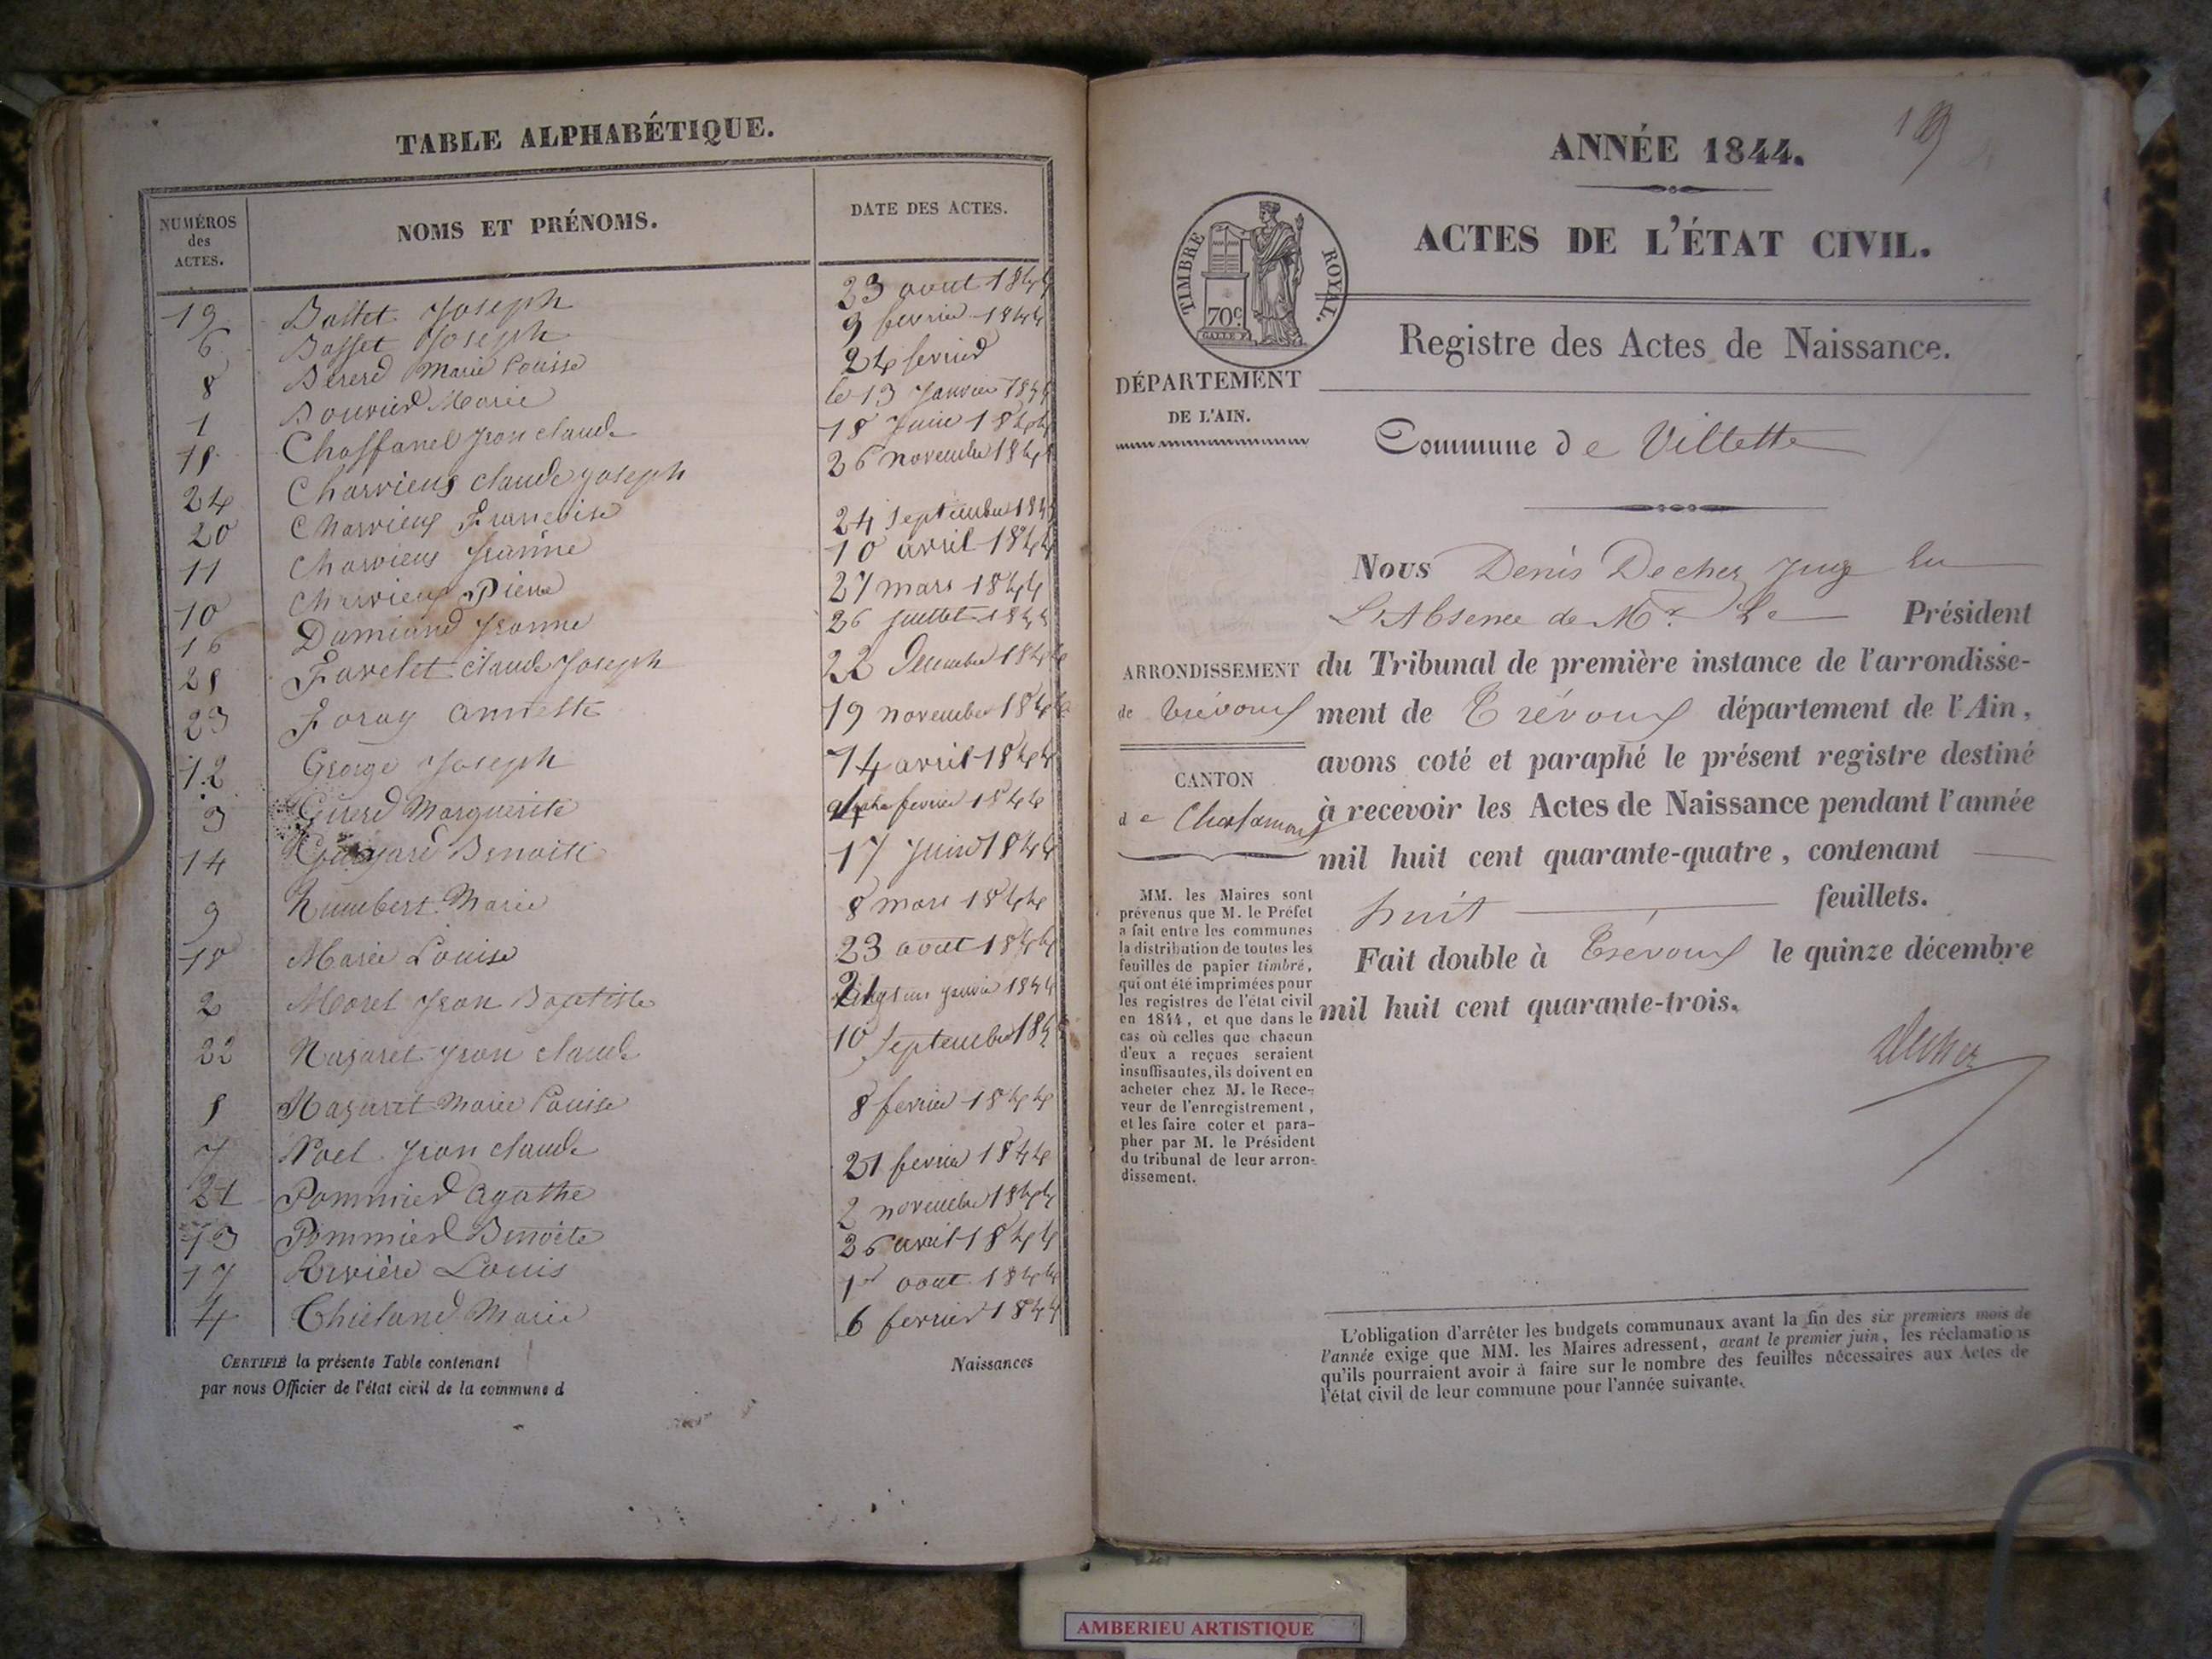 TABLE ALPHABÉTIQUE.
NUMÉROS des ACTES. NOMS ET PRÉNOMS. DATE DES ACTES.
19 Ballet Joseph 23 aout 1844
6 Basset Joseph 9 fevrier 1844
8 Bererd Marie Louise 24 fevrier
1 Bouvier Marie le 13 Janvier 1844
15 Chaffanel Jean claude 18 Juin 1844
24 Charvieux claude joseph 26 novembre 1844
20 Charvieux Francoise 24 septembre 1844
11 Charvieux Jeanne 10 avril 1844
10 Charvieux Pierre 27 mars 1844
16 Damiand Jeanne 26 Juillet 1844
25 Favelet claude Joseph 22 Decembre 1844
23 Foray 19 novembre 1844
12 George Joseph 14 avril 1844
3 Guerd Marguerite fevrier 1844
14 Benoite 17 Juin 1844
9 Humbert Marie 8 mars 1844
18 Marie Louise 23 aout 1844
2 Morel Jean Baptiste 21 janvier 1844
22 Nazaret Jean claude 10 septembre 184
5 Nazaret Marie Louise 8 fevrier 1844
7 Noel Jean claude 21 fevrier 1844
21 Pommier Agathe 2 novembre 1844
13 Pommier Benoite 26 avril 1844
17 Rivière Louis 1er aout 1844
4 Marie 6 fevrier 1844
CERTIFIÉ la présente Table contenant Naissances
par nous Officier de l'état civil de la commune d
ANNÉE 1844.
ACTES DE L'ÉTAT CIVIL.
TIMBRE ROYAL.
70c.
Registre des Actes de Naissance.
DÉPARTEMENT
DE L'AIN.
Commune de Villette
Nous Denis Decher Juge en
L'Absence de Mr. Le Président
du Tribunal de première instance de l'arrondisse-
ment de Trévoux département de l'Ain,
avons coté et paraphé le présent registre destiné
à recevoir les Actes de Naissance pendant l'année
mil huit cent quarante-quatre, contenant
huit feuillets.
Fait double à Trévoux le quinze décembre
mil huit cent quarante-trois.
Decher
ARRONDISSEMENT
de Trévoux
CANTON
de Chalamont
MM. les Maires sont
prévenus que M. le Préfet
a fait entre les communes
la distribution de toutes les
feuilles de papier timbré,
qui ont été imprimées pour
les registres de l'état civil
en 1844, et que dans le
cas où celles que chacun
d'eux a reçues seraient
insuffisantes, ils doivent en
acheter chez M. le Rece-
veur de l'enregistrement,
et les faire coter et para-
pher par M. le Président
du tribunal de leur arron-
dissement.
L'obligation d'arrêter les budgets communaux avant la fin des six premiers mois de
l'année exige que MM. les Maires adressent, avant le premier juin, les réclamations
qu'ils pourraient avoir à faire sur le nombre des feuilles nécessaires aux Actes de
l'état civil de leur commune pour l'année suivante.
AMBERIEU ARTISTIQUE